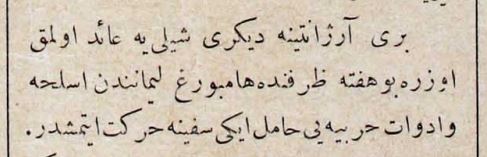 بری آرژانتینه دیکری شیلی یه عائد اولمق
اوزره بو هفته ظرفنده هامبورغ لیمانندن اسلحه
و ادوات حربیه یی حامل ایکی سفینه حرکت ایتمشدر.